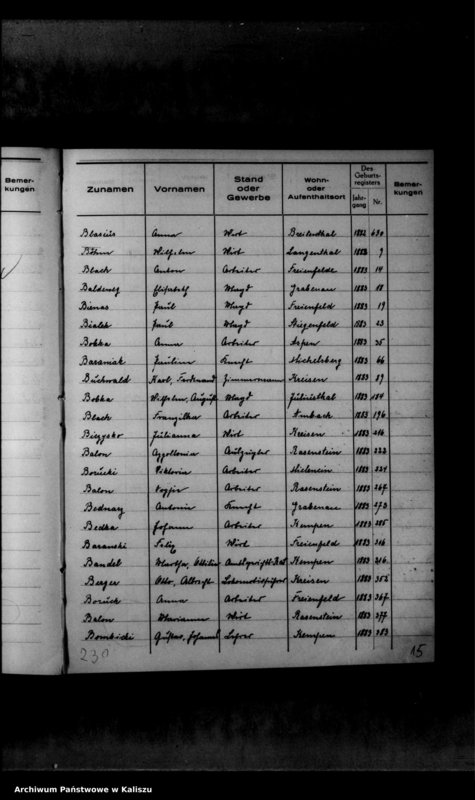 Bemer-
kungen
Zunamen Vornamen Stand oder Gewerbe Wohn- oder Aufenthaltsort Des Geburts-registers Jahr-gang Nr. Bemer-kungen
Blasius Anna Wirt Breitenthal 1882 630
Böhm Wilhelm Wirt Langenthal 1883 9
Black Anton Arbeiter Freienfelde 1883 14
Elisabeth Magd Grabenau 1883 18
Bienas Paul Magd Freienfeld 1883 19
Bialek Paul Magd 1883 23
Bobka Anna Arbeiter Aspen 1883 35
Baraniak Knecht Michelsberg 1883 66
Buchwald Karl, Ferdinand Zimmermann Kreisen 1883 89
Bobka Wilhelm, August Magd Juliusthal 1883 184
Black Franziska Arbeiter Ambach 1883 196
Julianna Wirt Kreisen 1883 216
Balon Appollonia Rasenstein 1883 222
Borucki Viktoria Arbeiter 1883 224
Balon Arbeiter Rasenstein 1883 267
Bednarz Antonin Knecht Grabenau 1883 273
Bedka Johann Arbeiter Kempen 1883 285
Baranski Felix Wirt Freienfeld 1883 316
Bandel Martha, Ottilie Amtsgericht-Rat Kempen 1883
Berger Otto, Albrecht Lokomotivführer Kreisen 1883 356
Boruck Anna Arbeiter Freienfeld 1883 367
Balon Marianna Wirt Rasenstein 1883 377
Gustav, Johann Lehrer Kempen 1883 383
230 15
Archiwum Państwowe w Kaliszu